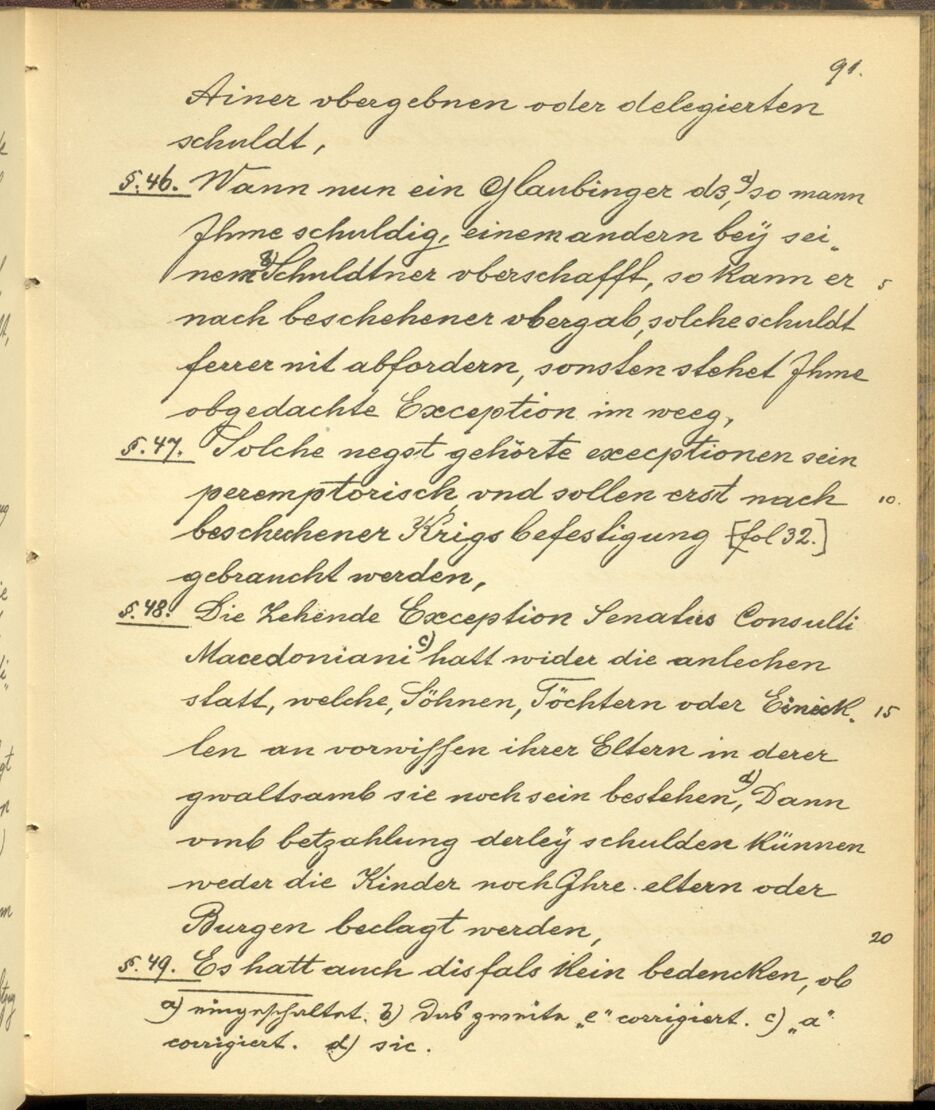 91.
Ainer vbergebnen oder delegierten
schuldt,
§.46. Wann nun ein Glaubinger dz, a) so mann
Jhme schuldig, einem andern beÿ sei„
nem b) Schuldtner vberschafft, so kann er 5
nach beschehener vbergab, solche schuldt
ferrer nit abfordern, sonsten stehet Jhme
obgedachte Exception im weeg,
§.47. Solche negst gehörte exceptionen sein
peremptorisch, vnd sollen erst nach 10.
beschechener Krigs befestigung [fol 32.]
gebraucht werden,
§.48. Die Zehende Exception Senatus Consulti
Macedoniani c) hatt wider die anlechen
statt, welche, Söhnen, Töchtern oder Eineck. 15
len an vorwissen ihrer Eltern in derer
gwaltsamb sie noch sein bestehen, d) Dann
vmb betzahlung derleÿ schulden künnen
weder die Kinder noch Jhre eltern oder
Burgen beclagt werden, 20
§.49. Es hatt auch disfals kein bedencken, ob
a) eingeschaltet. b) Das zweite „e“ corrigiert. c) „a“
corrigiert. d) sic.